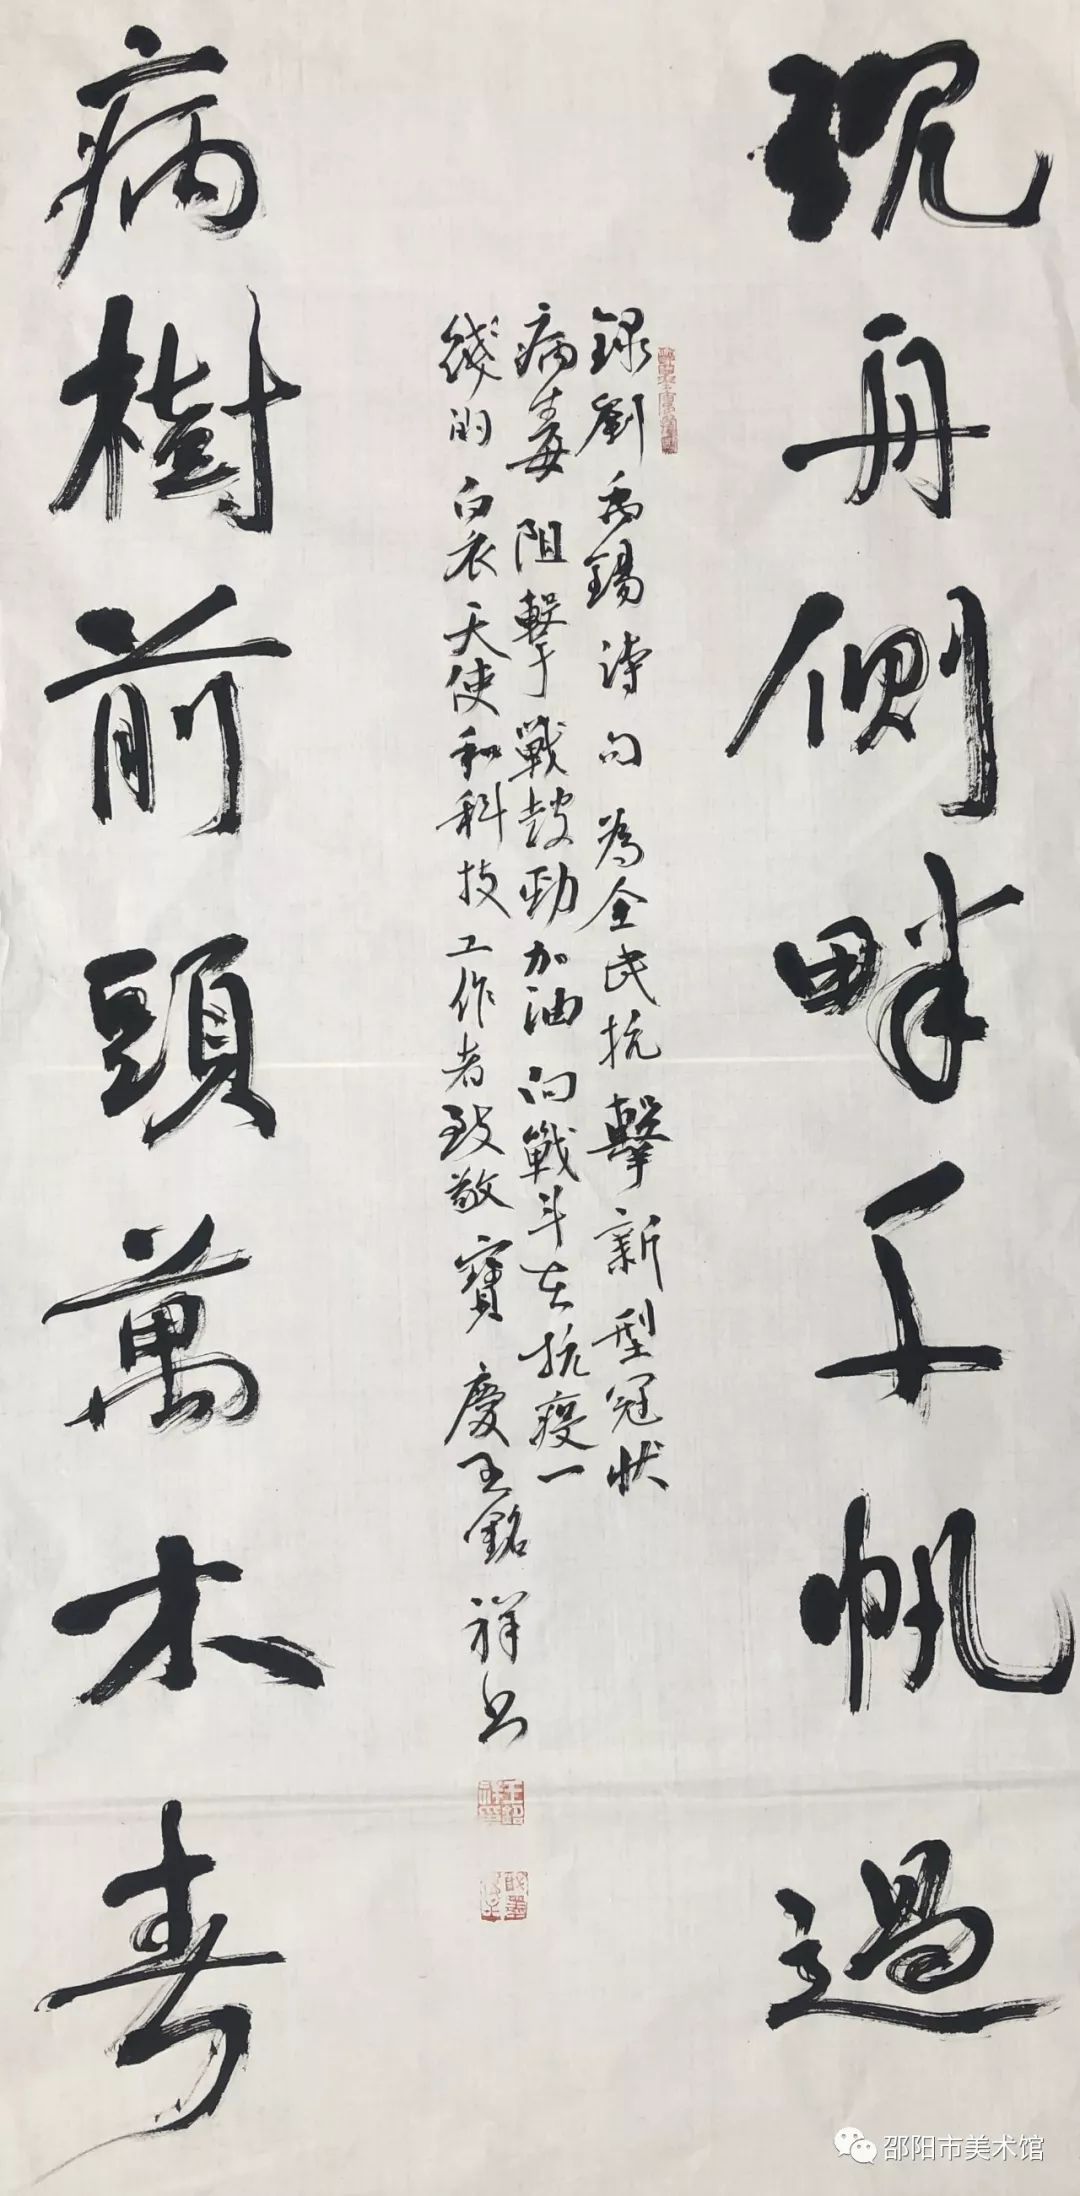 沉舟側畔千帆過
録劉禹錫詩句為全民抗擊新型冠状
病毒阻擊戰鼓勁加油向戰斗在抗疫一
綫的白衣天使和科技工作者致敬寶慶王銘祥书
王銘祥印
病樹前頭萬木春
邵阳市美术馆